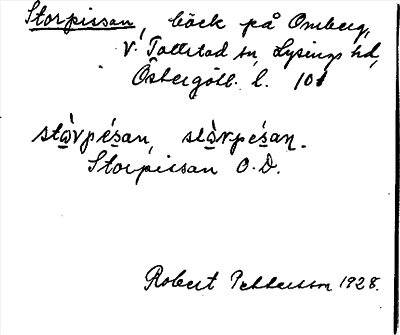 Storpissan, bäck på Omberg,
V. Tollstad sn, Lysings hd,
Östergötl. l. 101
stὼrpésan, stὼrpésaṇ.
Storpissan O.D.
Robert Pettersson 1928.